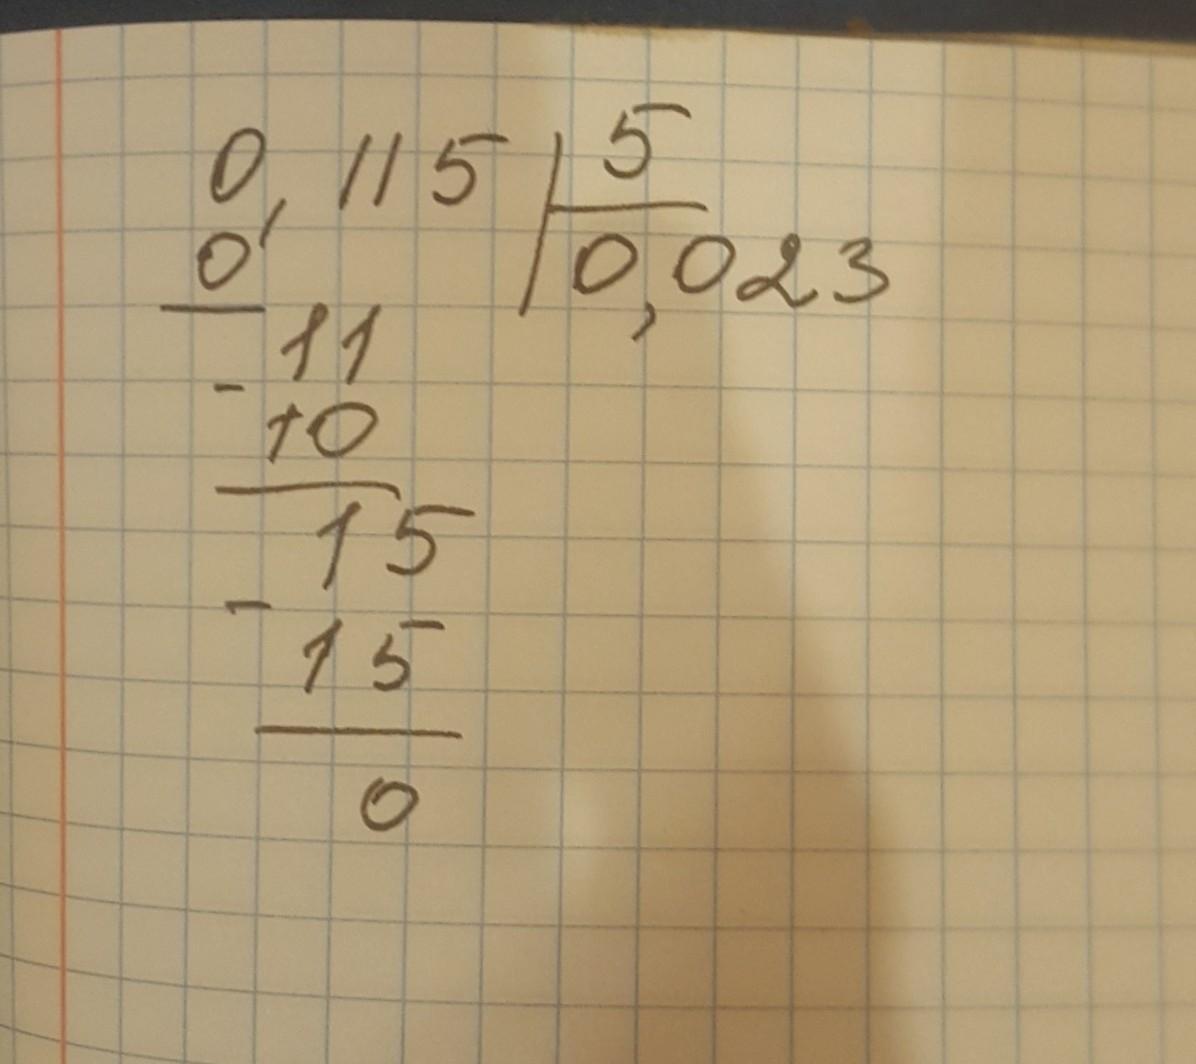 0,115 5
0 0,023
- 11
10
15
- 15
0